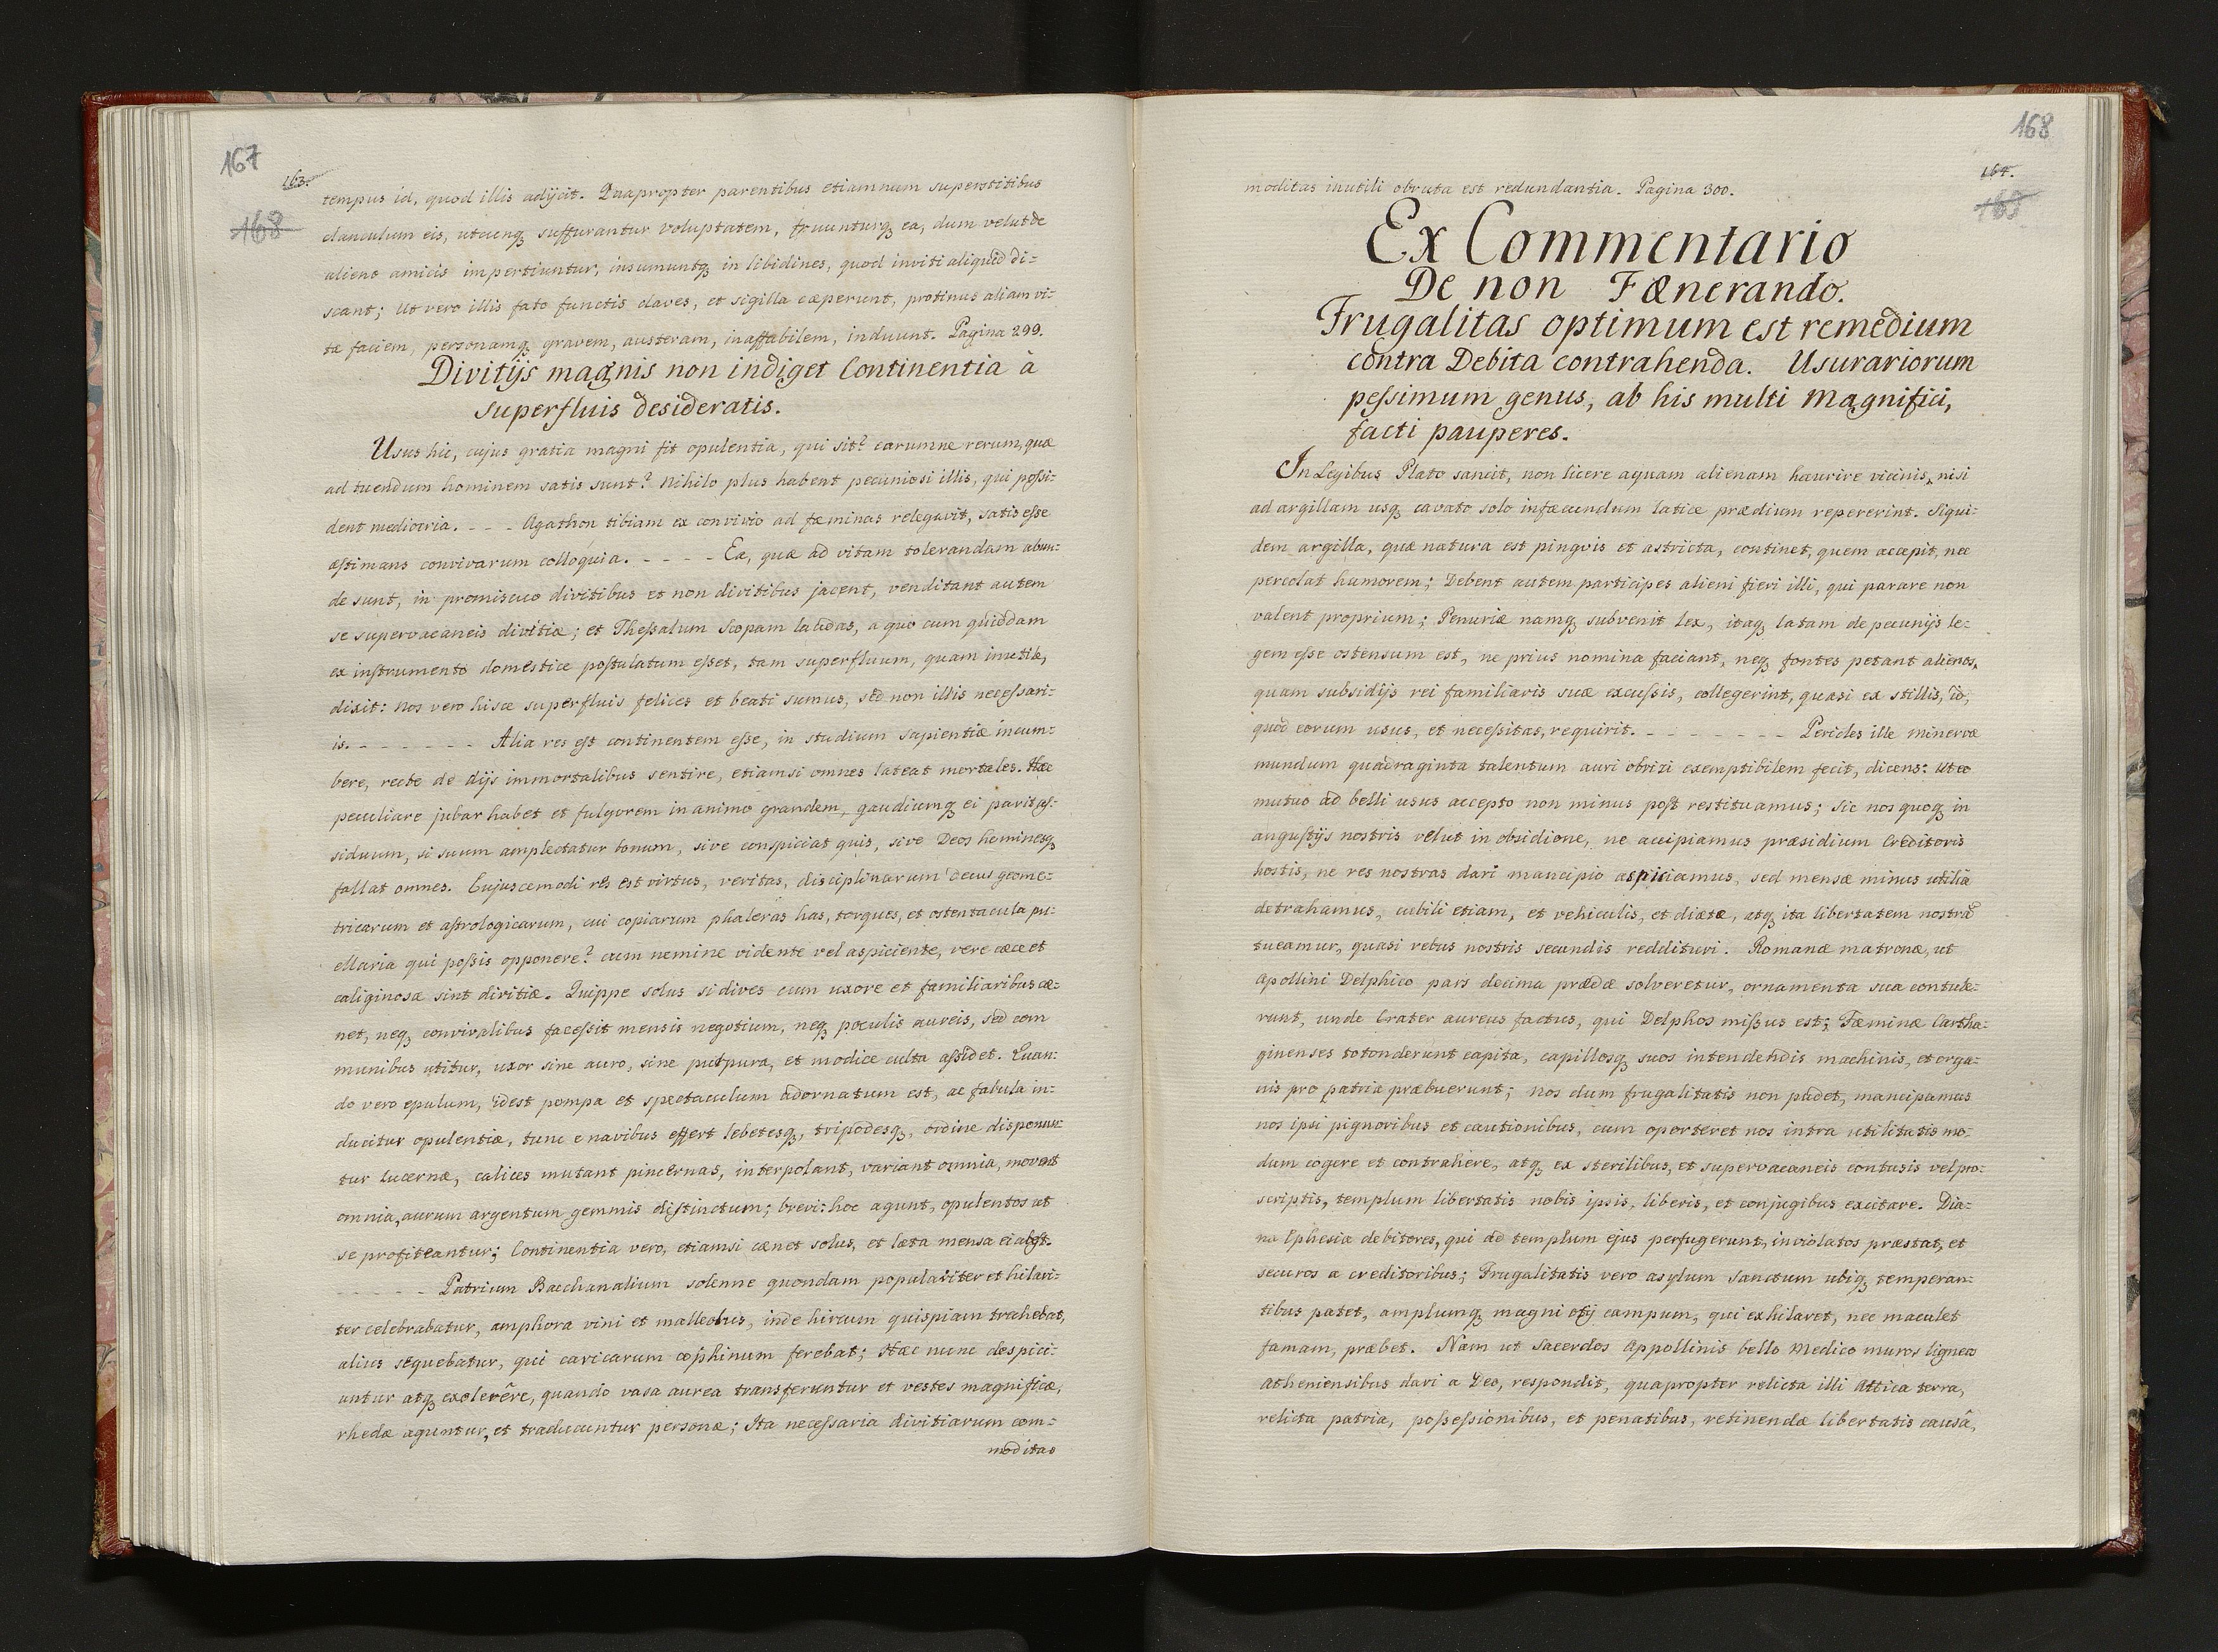 167
163.
168
tempus id, quod illis adijcit. Quapropter parentibus etiamnum superstitibus
clanculum eis, utcunq, suffurantur voluptatem, fruunturq, ea, dum velut de
alieno amicis impertiuntur, insumuntq, in libidines, quod inviti aliquid di=
scant; Ut vero illis fato functis claves, et sigilla cæperunt, protinus aliam vi=
tæ faciem, personamq, gravem, austeram, inaffabilem, induunt. Pagina 299.
Divitijs magnis non indiget Continentia à
superfluis desideratis.
Usus hic, cujus gratia magni fit opulentia, qui sit? earumne rerum, quæ
ad tuendum hominem satis sunt? Nihilo plus habent pecuniosi illis, qui possi=
dent mediocria. - - - Agathon tibiam ex convivio ad fæminas relegavit, satis esse
æstimans convivarum colloquia. - - - - Ea, quæ ad vitam tolerandam abun=
de sunt, in promiscuo divitibus et non divitibus jacent, venditant autem
se supervacaneis divitiæ; et Thessalum Scopam laudas, a quo cum quiddam
ex instrumento domestico postulatum esset, tam superfluum, quam inutile,
dixit: Nos vero hisce superfluis felices et beati sumus, sed non illis necessari=
is. - - - - - - - Alia res est continentem esse, in studium sapientiæ incum=
bere, recte de dijs immortalibus sentire, etiamsi omnes lateat mortales. Hæc
peculiare jubar habet et fulgorem in animo grandem, gaudiumq, ei parit as=
siduum, si suum amplectatur bonum, sive conspiciat quis, sive Deos hominesq,
fallat omnes. Cujuscemodi res est virtus, veritas, disciplinarum decus geome=
tricarum et astrologicarum, cui copiarum phaleras has, torques, et ostentacula pu=
ellaria qui possis opponere? cum nemine vidente vel aspiciente, vere cæcæ et
caliginosæ sint divitiæ. Quippe solus si dives cum uxore et familiaribus cæ=
net, neq, convivalibus facessit mensis negotium, neq, poculis aureis, sed com
munibus utitur, uxor sine auro, sine purpura, et modice culta assidet. Quan=
do vero epulum, idest pompa et spectaculum adornatum est, ac fabula in=
ducitur opulentiæ, tunc e navibus effert lebetesq, tripodesq, ordine disponun=
tur lucernæ, calices mutant pincernas, interpolant, variant omnia, movent
omnia, aurum argentum gemmis distinctum; brevi: hoc agunt, opulentos ut
se profiteantur; Continentia vero, etiamsi cænet solus, et læta mensa ei abest.
- - - - - - Patrium Bacchanalium solenne quondam populariter et hilari=
ter celebrabatur, amphora vini et malleolus, inde hircum quispiam trahebat,
alius sequebatur, qui caricarum cophinum ferebat; Hæc nunc despici=
untur atq, exolevêre, quando vasa aurea transferuntur et vestes magnificæ,
rhedæ aguntur, et traducuntur personæ; Ita necessaria divitiarum com=
moditas
168
164.
169
moditas inutili obruta est redundantia. Pagina 300.
Ex Commentario
De non Fænerando.
Frugalitas optimum est remedium
contra Debita contrahenda. Usurariorum
pessimum genus, ab his multi Magnifici,
facti pauperes.
In Legibus Plato sancit, non licere aquam alienam haurire vicinis, nisi
ad argillam usq, cavato solo infæcundum latice prædium repererint. Siqui=
dem argilla, quæ natura est pingvis et astricta, continet, quem accepit, nec
percolat humorem; Debent autem participes alieni fieri illi, qui parare non
valent proprium; Penuriæ namq, subvenit lex, itaq, latam de pecunijs le=
gem esse ostensum est, ne prius nomina faciant, neq, fontes petant alienos,
quam subsidijs rei familiaris suæ excussis, collegerint, quasi ex stillis, id,
quod eorum usus, et necessitas, requirit. - - - - - - - - Pericles ille minervæ
mundum quadraginta talentum auri obrizi exemptibilem fecit, dicens: Ut eo
mutuo ad belli usus accepto non minus post restituamus; sic nos quoq, in
angustijs nostris velut in obsidione, ne accipiamus præsidium Creditoris
hostis, ne res nostras dari mancipio aspiciamus, sed mensæ minus utilia
detrahamus, cubili etiam, et vehiculis, et diætæ, atq, ita libertatem nostrã
tueamur, quasi rebus nostris secundis reddituri. Romanæ matronæ, ut
Apollini Delphico pars decima prædæ solveretur, ornamenta sua contule=
runt, unde Crater aureus factus, qui Delphos missus est; Fæminæ Cartha=
ginenses totonderunt capita, capillosq, suos intendendis machinis, et orga=
nis pro patria præbuerunt; nos dum frugalitatis non pudet, mancipamus
nos ipsi pignoribus et cautionibus, cum oporteret nos intra utilitatis mo=
dum cogere et contrahere, atq, ex sterilibus, et supervacaneis contusis vel pro=
scriptis, templum libertatis nobis ipsis, liberis, et conjugibus excitare. Dia=
na Ephesia debitores, qui ad templum ejus perfugerunt, inviolatos præstat, et
securos a creditoribus; Frugalitatis vero asylum sanctum ubiq, temperan=
tibus patet, amplumq, magni otij campum, qui exhilaret, nec maculet
famam, præbet. Nam ut Sacerdos Appollinis bello Medico muros ligneos
Atheniensibus dari a Deo, respondit, quapropter relicta illi Attica terra,
relicta patria, possessionibus, et penatibus, retinendæ libertatis causâ,